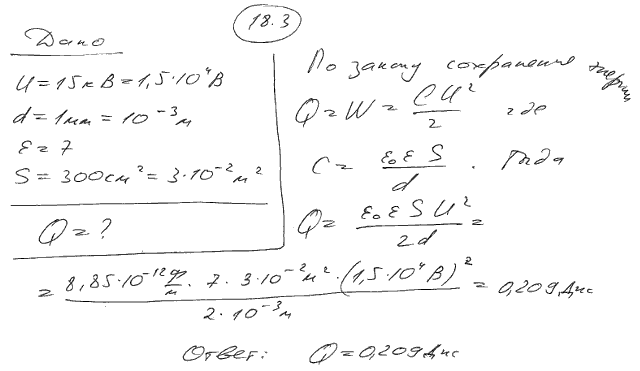 18.3
Дано
U = 15кВ = 1,5·10⁴В
d = 1мм = 10⁻³м
ε = 7
S = 300см² = 3·10⁻²м²
Q = ?
По закону сохранения энергии
Q = W = CU²/2 где
C = ε₀εS/d . Тогда
Q = ε₀εSU²/2d =
= 8,85·10⁻¹²ф/м · 7 · 3·10⁻²м² · (1,5·10⁴В)²/2·10⁻³м = 0,209Дж
Ответ: Q = 0,209Дж